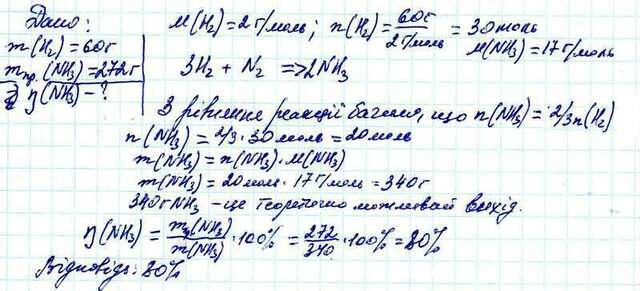 Дано:
m(H₂)=60г
mпр.(NH₃)=272г
η(NH₃)-?
M(H₂)=2 г/моль; n(H₂)=60г/2г/моль=30моль
M(NH₃)=17 г/моль
3H₂ + N₂ => 2NH₃
З рівняння реакції бачимо, що n(NH₃)=2/3n(H₂)
n(NH₃)=2/3·30моль=20моль
m(NH₃)=n(NH₃)·M(NH₃)
m(NH₃)=20моль·17 г/моль=340г
340г NH₃ - це теоретично можливий вихід.
η(NH₃)=mп(NH₃)/m(NH₃)·100%=272/340·100%=80%
Відповідь: 80%